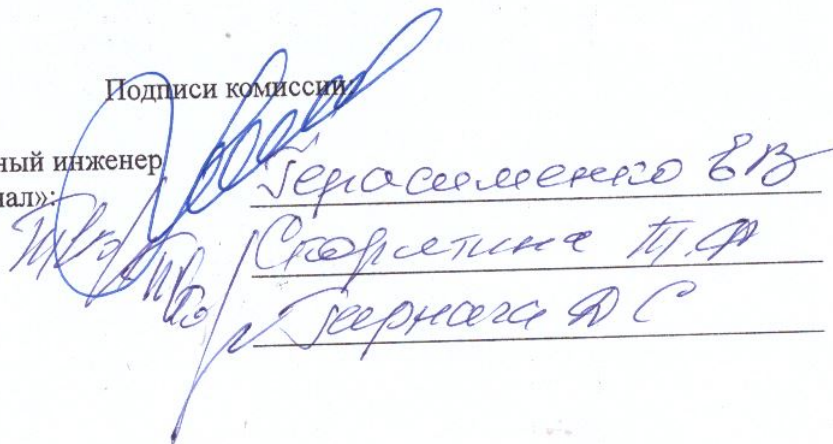 Подписи комиссии:
ный инженер
нал»:
Герасименко ЕВ
Скорятина Т.А
Д С